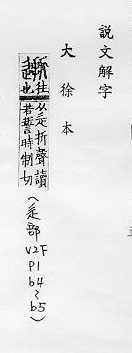 說文解字
大徐本
往也从辵折聲讀
若誓時制切
(辵部 V2F P1 b4~b5)